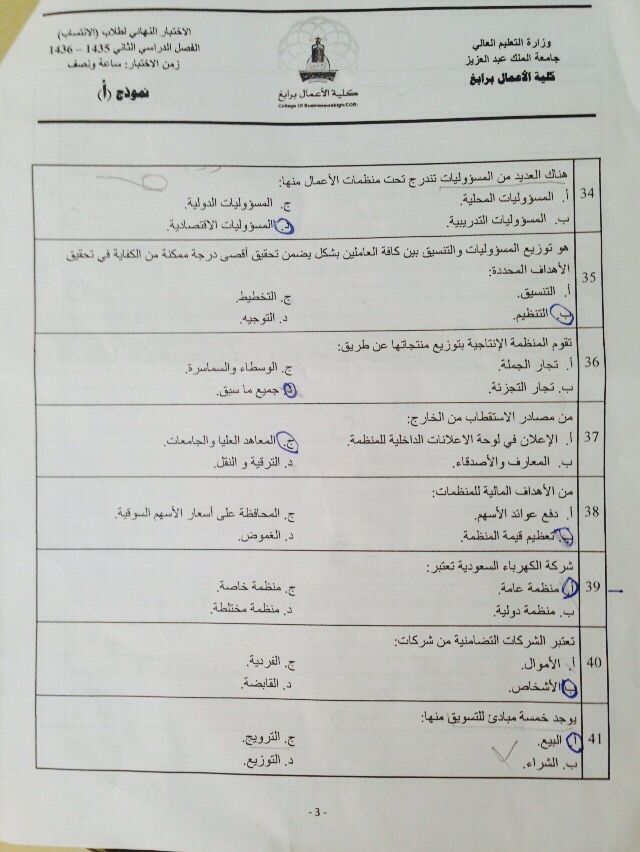 وزارة التعليم العالي
جامعة الملك عبد العزيز
كلية الأعمال برابغ
كلية الأعمال برابغ
الاختبار النهائي لطلاب (الانتساب)
الفصل الدراسي الثاني 1435 – 1436
زمن الاختبار: ساعة ونصف
نموذج (أ)
34 هناك العديد من المسؤوليات تندرج تحت منظمات الأعمال منها:
أ. المسؤوليات المحلية. ج. المسؤوليات الدولية.
ب. المسؤوليات التدريبية. د. المسؤوليات الاقتصادية.
35 هو توزيع المسؤوليات والتنسيق بين كافة العاملين بشكل يضمن تحقيق أقصى درجة ممكنة من الكفاية في تحقيق
الأهداف المحددة:
أ. التنسيق. ج. التخطيط.
ب. التنظيم. د. التوجيه.
36 تقوم المنظمة الإنتاجية بتوزيع منتجاتها عن طريق:
أ. تجار الجملة. ج. الوسطاء والسماسرة.
ب. تجار التجزئة. د. جميع ما سبق.
37 من مصادر الاستقطاب من الخارج:
أ. الإعلان في لوحة الاعلانات الداخلية للمنظمة. ج. المعاهد العليا والجامعات.
ب. المعارف والأصدقاء. د. الترقية و النقل.
38 من الأهداف المالية للمنظمات:
أ. دفع عوائد الأسهم. ج. المحافظة على أسعار الأسهم السوقية.
ب. تعظيم قيمة المنظمة. د. الغموض.
39 شركة الكهرباء السعودية تعتبر:
أ. منظمة عامة. ج. منظمة خاصة.
ب. منظمة دولية. د. منظمة مختلطة.
40 تعتبر الشركات التضامنية من شركات:
أ. الأموال. ج. الفردية.
ب. الأشخاص. د. القابضة.
41 يوجد خمسة مبادئ للتسويق منها:
أ. البيع. ج. الترويج.
ب. الشراء. د. التوزيع.
- 3 -